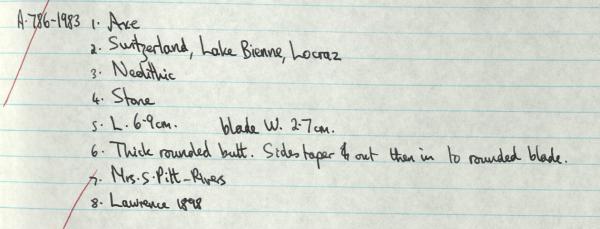 A.786-1983 1. Axe
2. Switzerland, Lake Bienne, Locraz
3. Neolithic
4. Stone
5. L. 6.9cm. blade W. 2.7cm.
6. Thick rounded butt. Sides taper out then in to rounded blade.
7. Mrs. S. Pitt-Rivers
8. Lawrence 1898